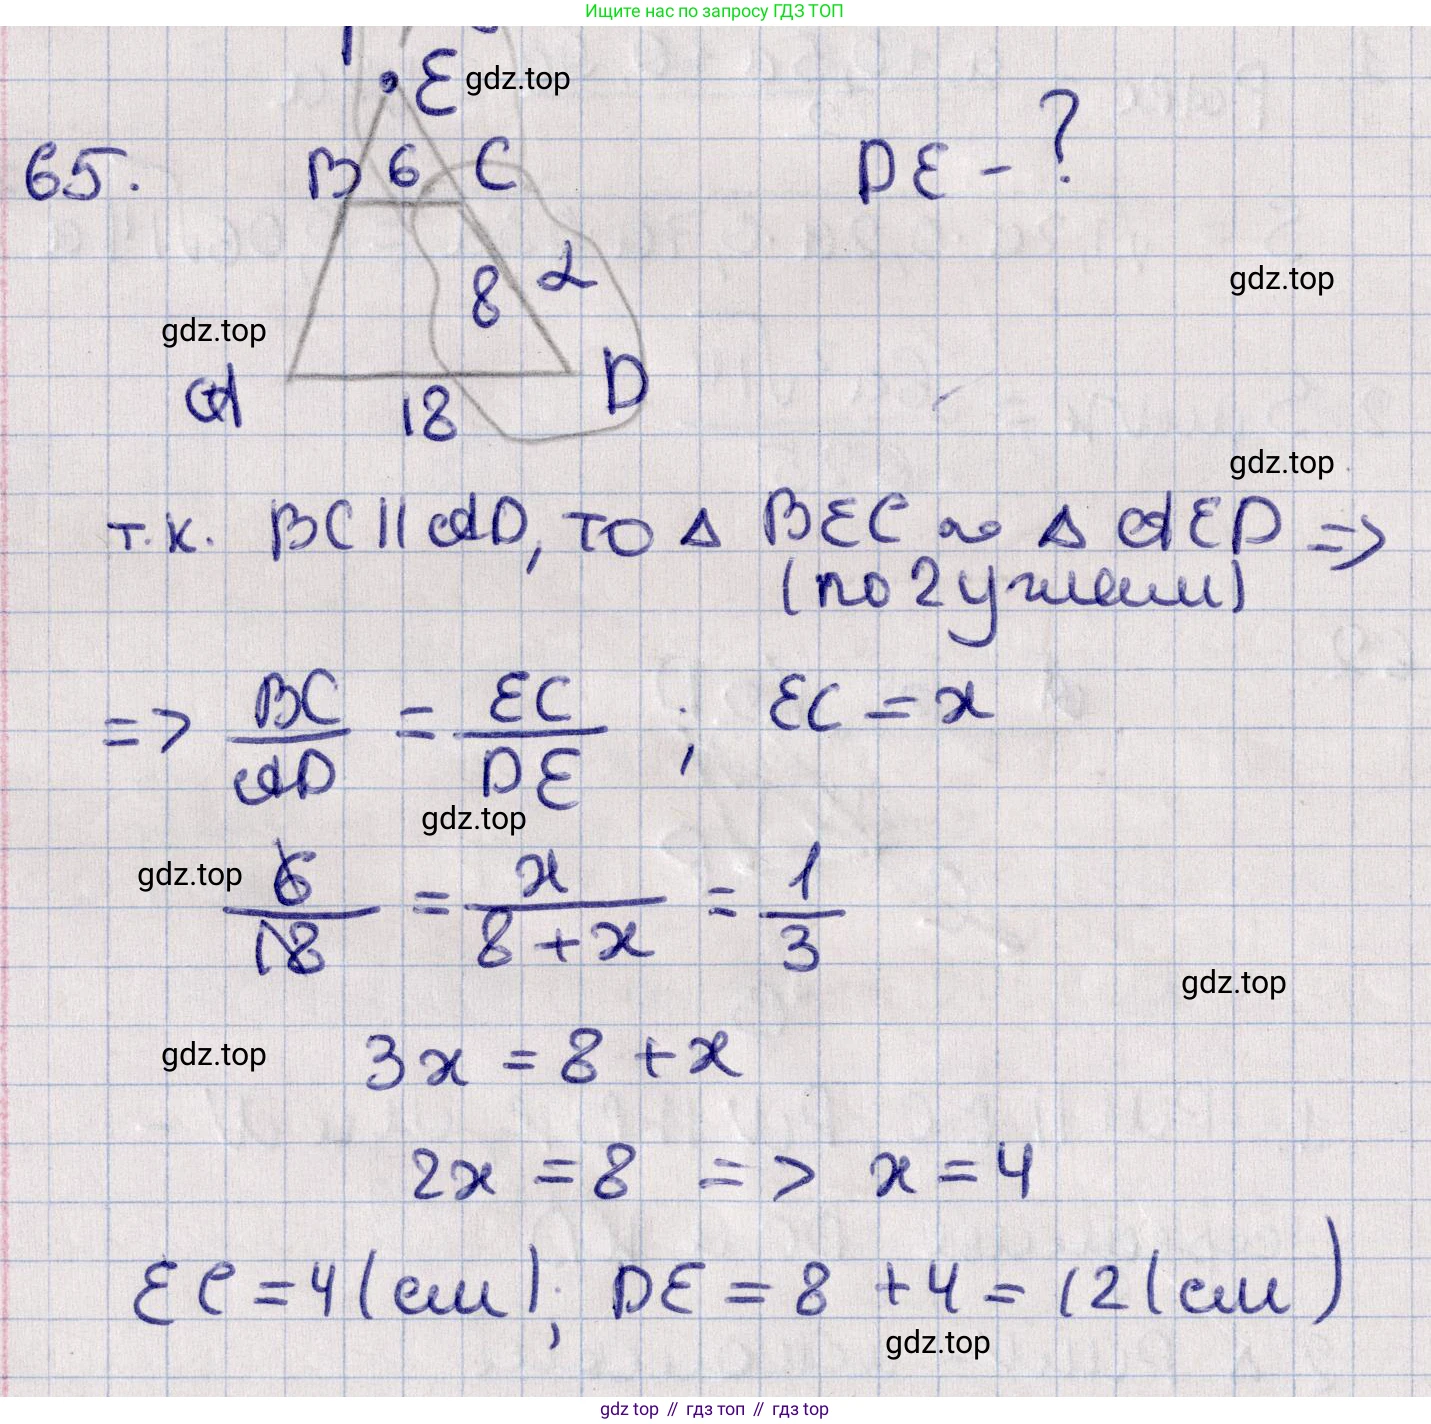 Ищите нас по запросу ГДЗ ТОП
E gdz.top
65. B 6 C DE - ?
8 2 gdz.top
gdz.top
A 18 D
gdz.top
т.к. BC || AD, то Δ BEC ~ Δ AED =>
(по 2 углам)
=> BC/AD = EC/DE ; EC = x
gdz.top
gdz.top 6/18 = x/8+x = 1/3
gdz.top
gdz.top 3x = 8 + x
2x = 8 => x = 4
EC = 4 (см); DE = 8 + 4 = 12 (см)
gdz.top
gdz top // гдз топ // гдз top